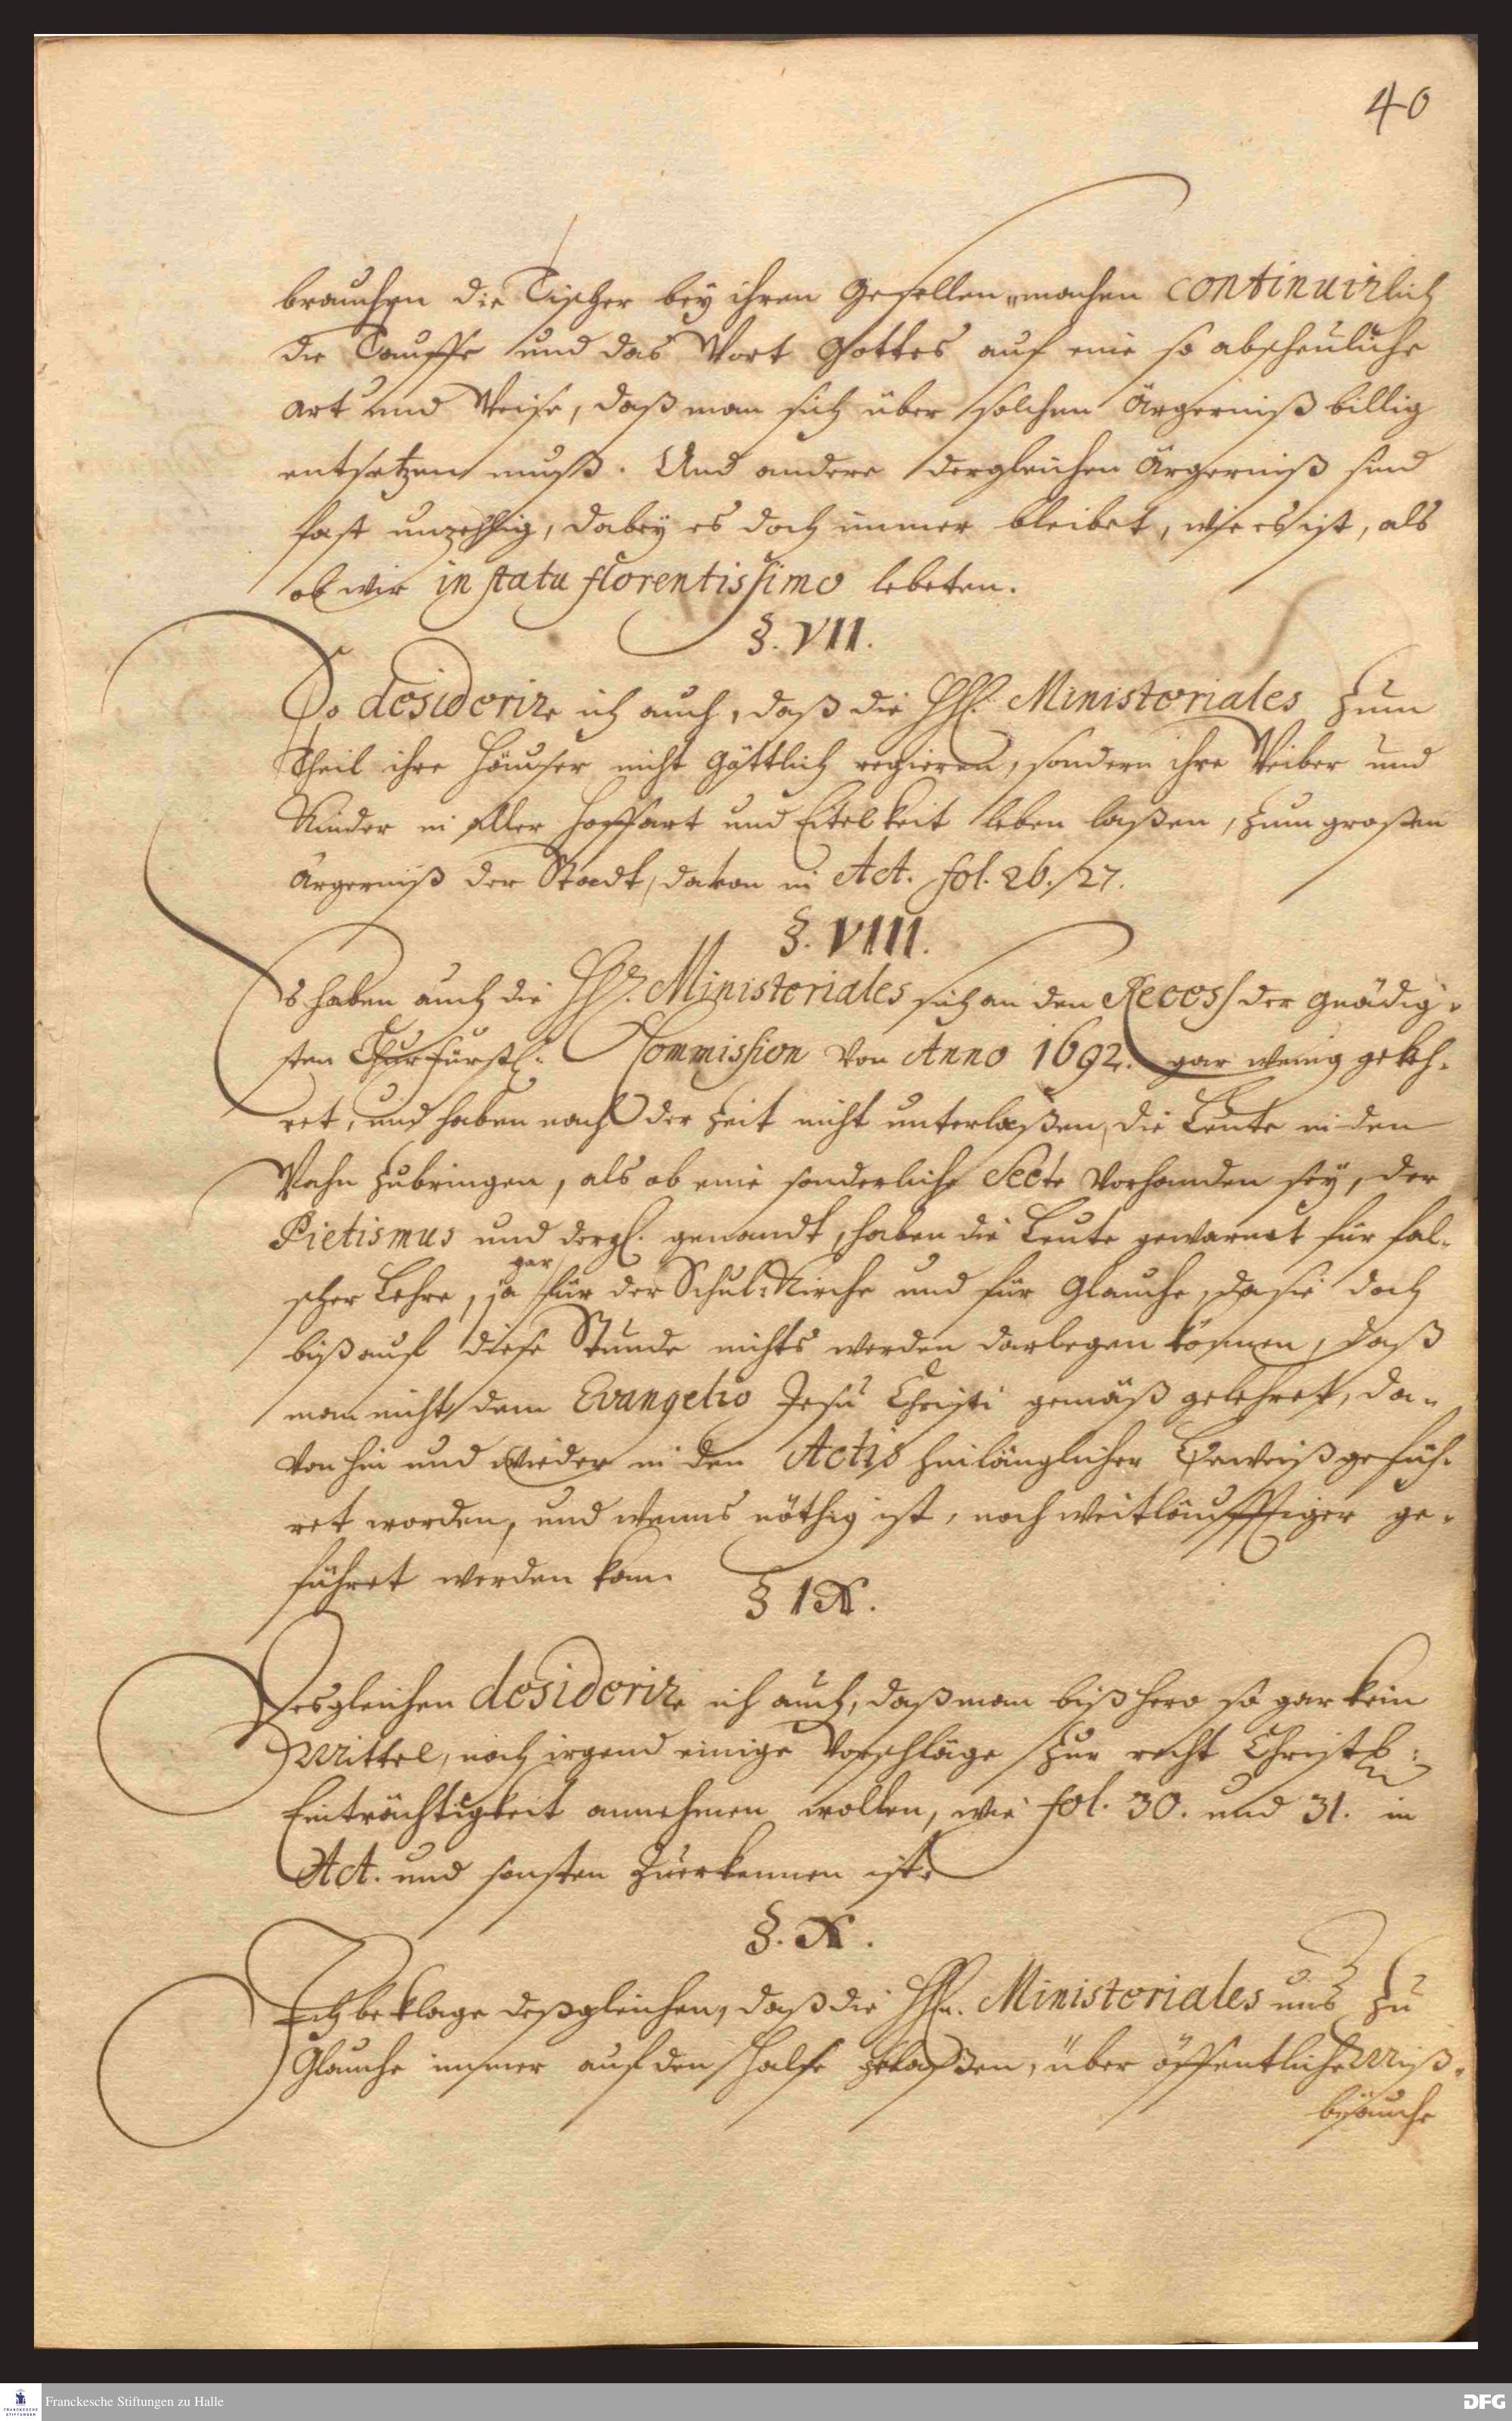 40
brauchen die Tischer bey ihren Gesellen-machen continuirlich
die Tauffe und das Wort Gottes auf eine so abscheuliche
art und Weise, daß man sich über solchen Ärgerniß billig
entsetzen muß. Und andere dergleichen Ärgerniß sind
fast unzehlig, dabey es doch immer bleibet, wie es ist, als
ob wir in statu florentissimo lebeten.
§. VII.
So desiderire ich auch, daß die HH. Ministeriales zum
Theil ihre Häuser nicht Göttlich regieren, sondern ihre Weiber und
Kinder in aller Hoffart und Eitelkeit leben laßen, zum großen
Ärgerniß der Stadt, davon in Act. fol. 26. 27.
§. VIII.
Es haben auch die HH. Ministeriales sich an den Recess der gnädig-
sten Churfürstl. Commission von Anno 1692. gar wenig gekeh-
ret, und haben nach der Zeit nicht unterlaßen, die Leute in den
Wahn zubringen, als ob eine sonderliche Secte vorhanden sey, der
Pietismus und dergl. genandt, haben die Leute gewarnet für fal-
scher Lehre, ja gar für der Schul-Kirche und für Glauche, da sie doch
biß auf diese Stunde nichts werden darlegen können, daß
man nicht dem Evangelio Jesu Christi gemäß gelehret, da-
von hin und wieder in den Actis hinlänglicher Beweiß gefüh-
ret worden, und wenns nöthig ist, noch weitläufftiger ge-
führet werden kan.
§ IX.
Desgleichen desiderire ich auch, daß man biß hero so gar kein
Mittel, noch irgend einige Vorschläge zur recht Christl:
Einträchtigkeit annehmen wollen, wie fol. 30. und 31. in
Act. und sonsten zuerkennen ist.
§. X.
Ich beklage deßgleichen, daß die HHn. Ministeriales uns zu
Glauche immer auf den Halse gelaßen, über öffentliche Miß-
bräuche
Franckesche Stiftungen zu Halle
DFG